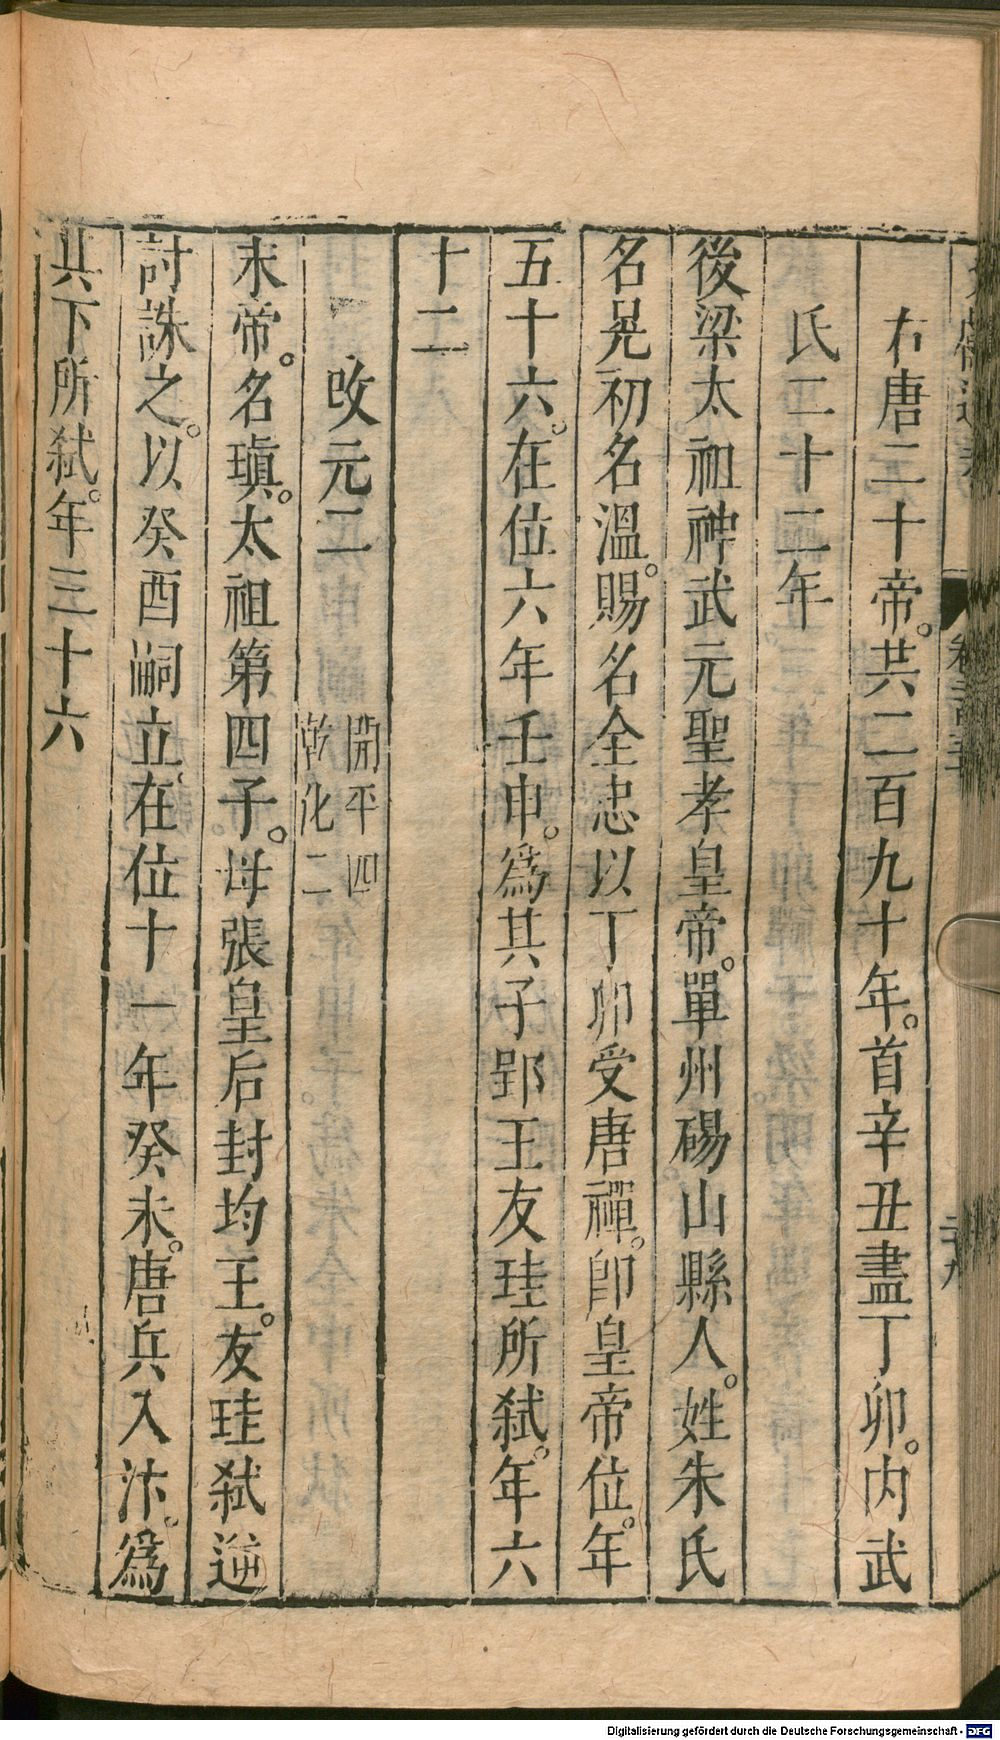 右唐二十帝。共二百九十年。首辛丑盡丁卯。內武
氏二十二年
後梁太祖神武元聖孝皇帝。單州碭山縣人。姓朱氏
名晃初名溫。賜名全忠以丁卯受唐禪。卽皇帝位。年
五十六。在位六年壬申。爲其子郢王友珪所弑。年六
十二
改元二 開平四
乾化二
末帝。名瑱。太祖第四子。母張皇后封均王。友珪弑逆
討誅之。以癸酉嗣立。在位十一年癸未。唐兵入汴。爲
其下所弑。年三十六
Digitalisierung gefördert durch die Deutsche Forschungsgemeinschaft - DFG